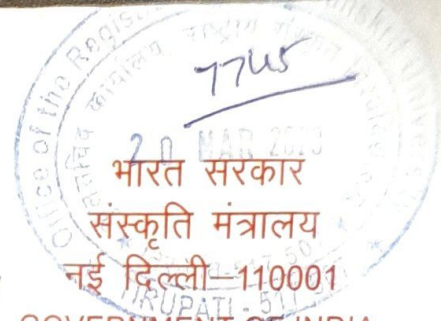 Office of the Registrar
7745
20 MAR 2023
भारत सरकार
संस्कृति मंत्रालय
नई दिल्ली–110001
TIRUPATI - 517
GOVERNMENT OF INDIA